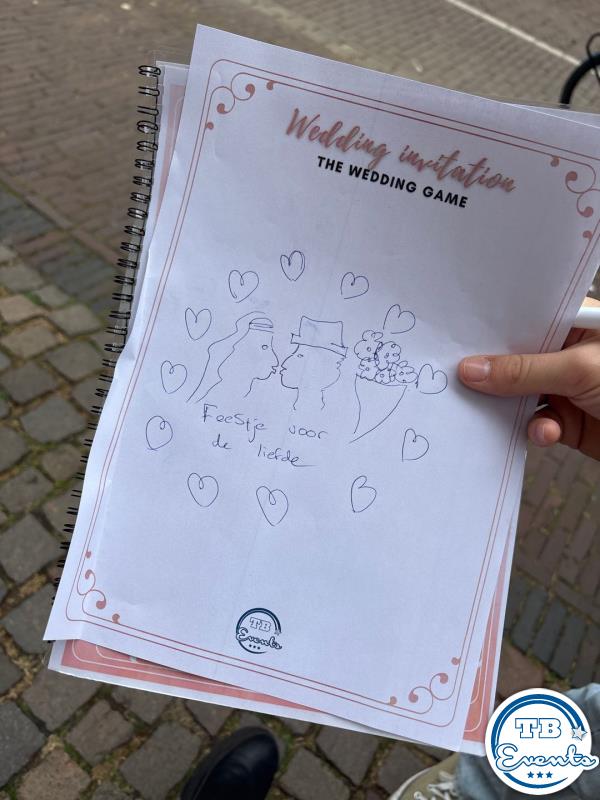 Wedding invitation
THE WEDDING GAME
Feestje voor
de liefde
TB
Events
TB
Events